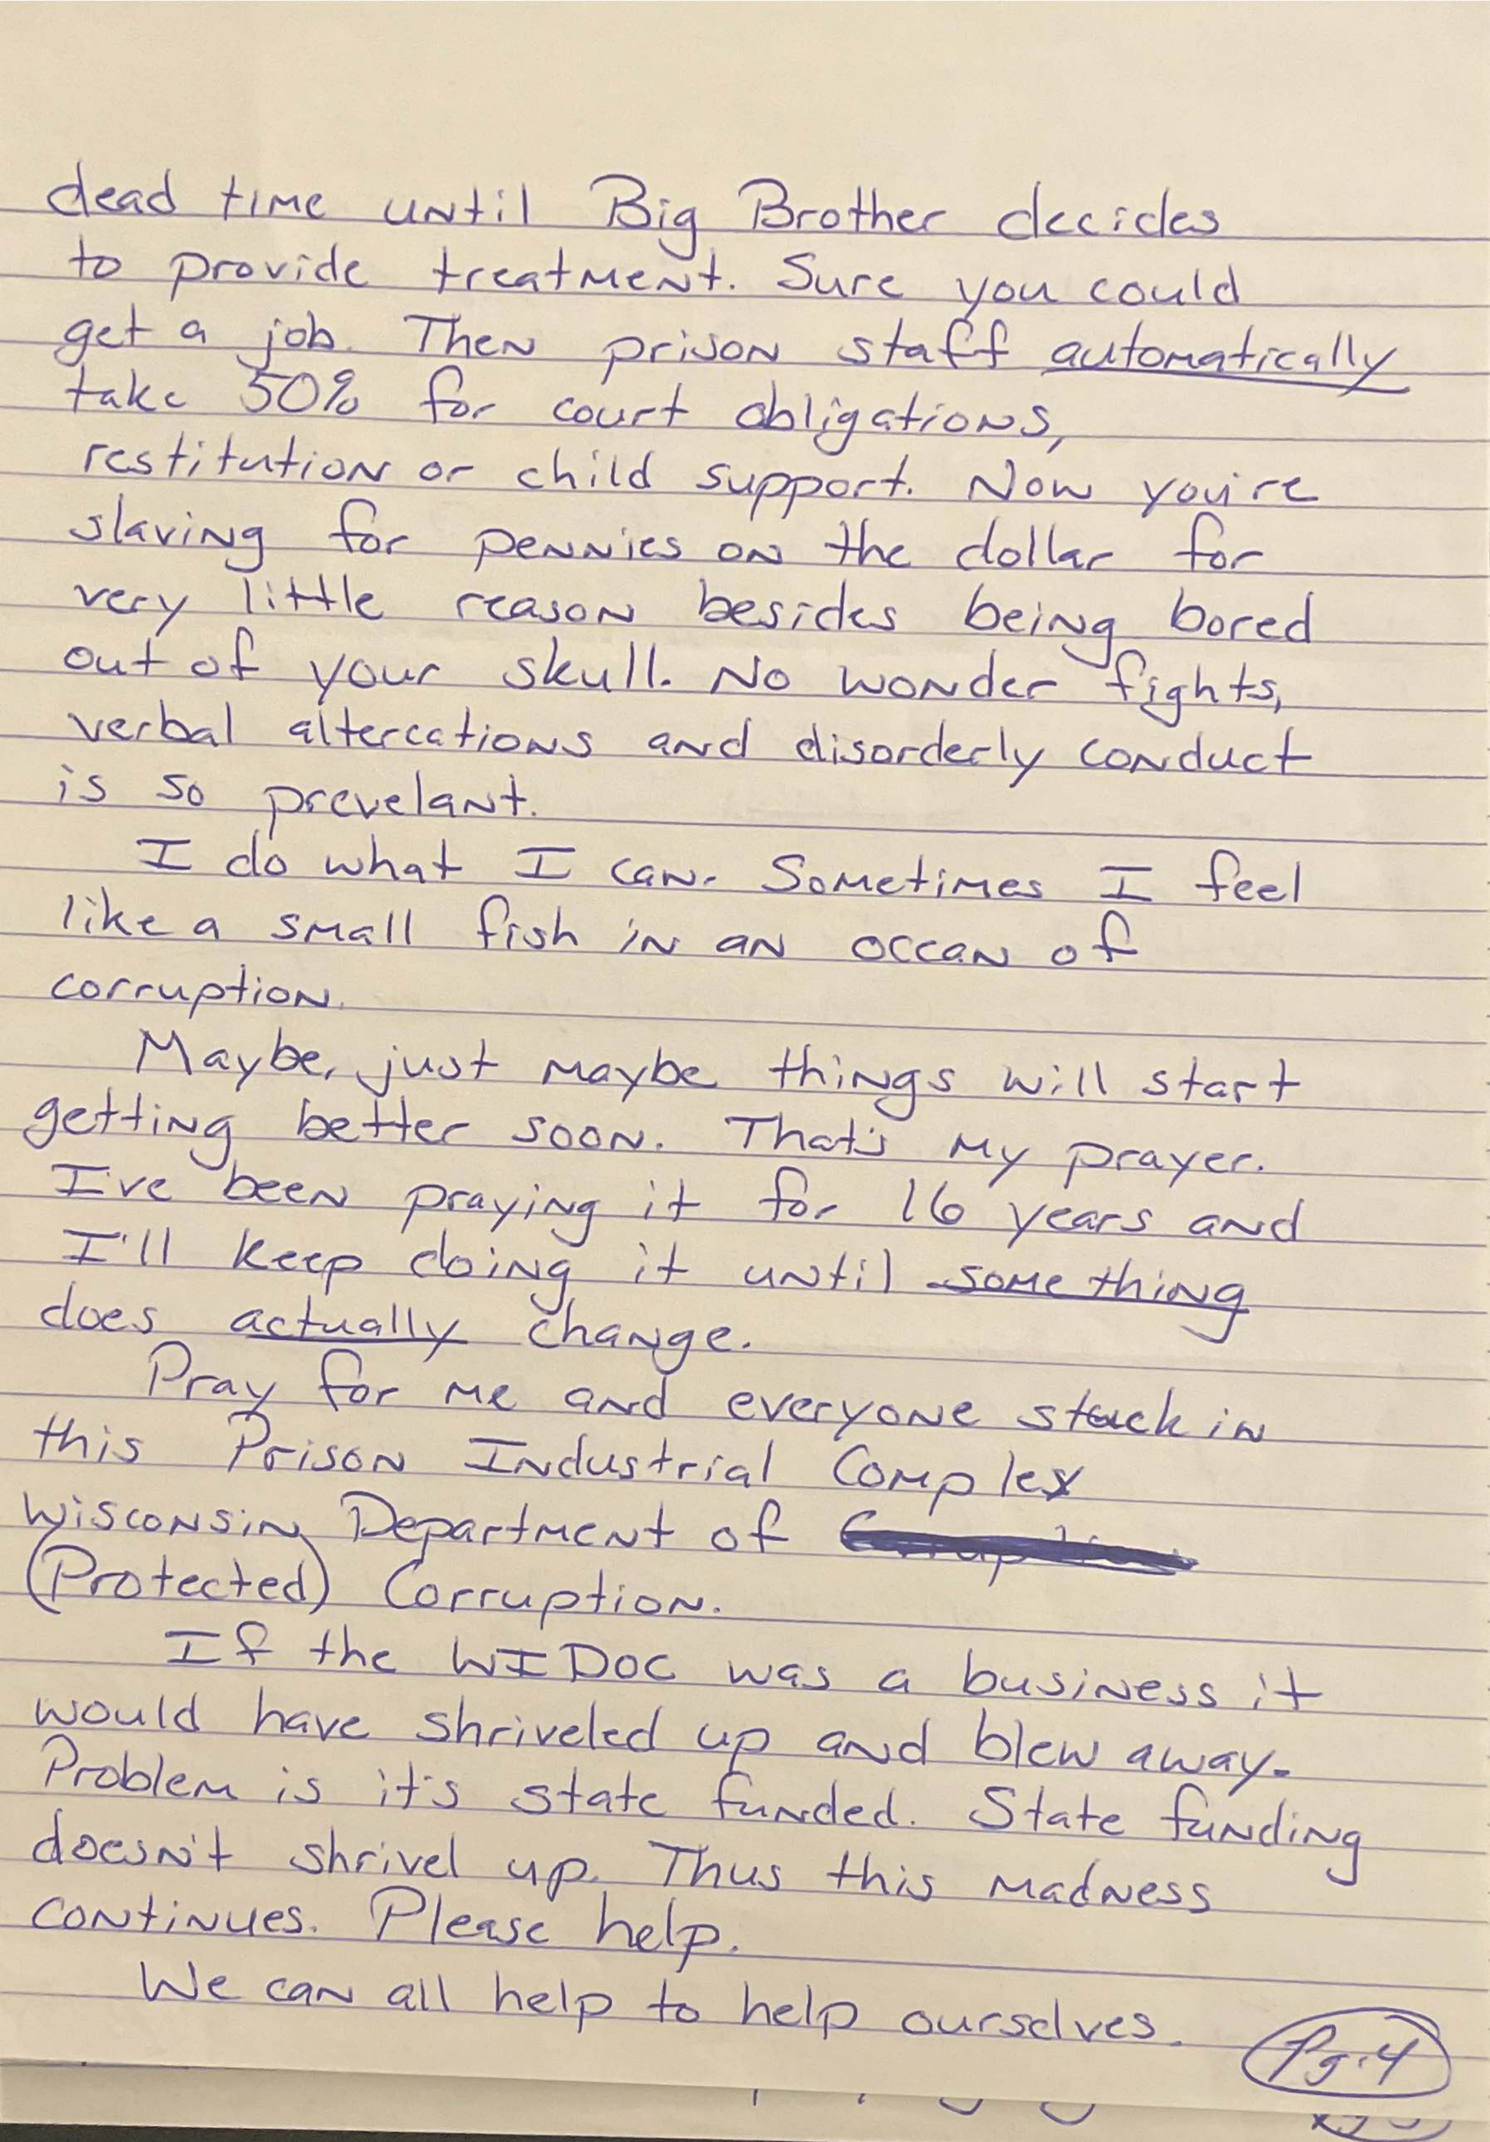 dead time until Big Brother decides
to provide treatment. Sure you could
get a job. Then prison staff automatically
take 50% for court obligations,
restitution or child support. Now you're
slaving for pennies on the dollar for
very little reason besides being bored
out of your skull. No wonder fights,
verbal altercations and disorderly conduct
is so prevelant.
I do what I can. Sometimes I feel
like a small fish in an ocean of
corruption.
Maybe, just maybe things will start
getting better soon. That's my prayer.
I've been praying it for 16 years and
I'll keep doing it until something
does actually change.
Pray for me and everyone stuck in
this Prison Industrial Complex
Wisconsin Department of
(Protected) Corruption.
If the WIDOC was a business it
would have shriveled up and blew away.
Problem is it's state funded. State funding
doesn't shrivel up. Thus this madness
continues. Please help.
We can all help to help ourselves.
Pg.4